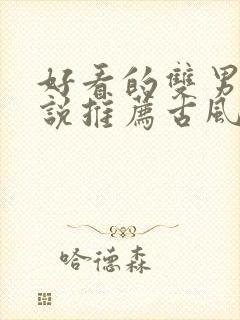 好看的雙男
說推薦古風
哈德森